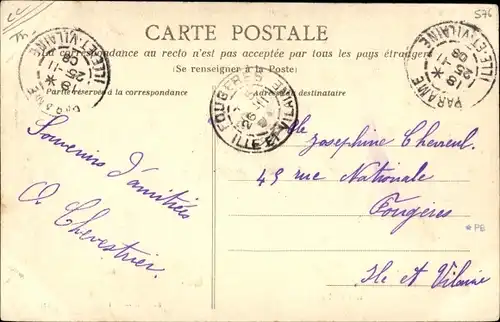 576
CARTE POSTALE
La correspondance au recto n'est pas acceptée par tous les pays étrangers
(Se renseigner à la Poste)
Partie réservée à la correspondance
Adresse du destinataire
PARAMÉ
25-11
08
ILLE-ET-VILAINE
FOUGÈRES
ILLE-ET-VILAINE
PARAMÉ
25-11
08
ILLE-ET-VILAINE
Souvenirs d'amitiés
O. Chevestrier
Mlle Josephine Chevreul.
45 rue Nationale
Fougères
Ile et Vilaine
*PE